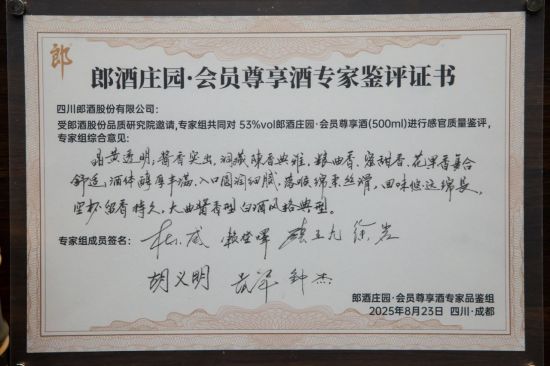 郎
郎酒庄园·会员尊享酒专家鉴评证书
四川郎酒股份有限公司：
受郎酒股份品质研究院邀请,专家组共同对 53%vol郎酒庄园·会员尊享酒(500ml)进行感官质量鉴评,
专家组综合意见：
晶黄透明,酱香突出,洞藏陈香典雅,粮曲香、蜜甜香、花果香复合
舒适,酒体醇厚丰满,入口圆润细腻,落喉绵柔丝滑,回味悠远绵长,
空杯留香持久,大曲酱香型白酒风格典型。
专家组成员签名：
胡义明 钟杰
郎酒庄园·会员尊享酒专家品鉴组
2025年8月23日 四川·成都